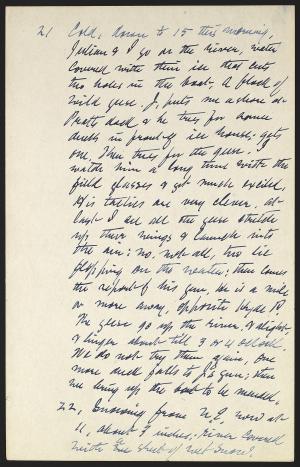 21 Cold, down to 15 this morning,
Julian & I go on the river, water
covered with thin ice that cuts
two holes in the boat. A flock of
wild geese. J. puts me ashore at
Pratt dock & he tries for some
ducks in front of ice house, gets
one. Then tries for the geese. I
watch him a long time with the
field glasses & get much excited.
His tactics are very clever. at
last I see all the geese stretch
up their wings & launch into
the air; no, not all, two lie
flopping on the water; then comes
the report of his gun. He is a mile
or more away, opposite Hyde P.
The geese go up the river, & alight
& linger about till 3 or 4 o'clock.
We do not try them again. One
more duck falls to J's gun; then
we bring up the boat to be mended.
22, Snowing from N.E., now at
11, about 3 inches. River covered
with one sheet of wet snow.